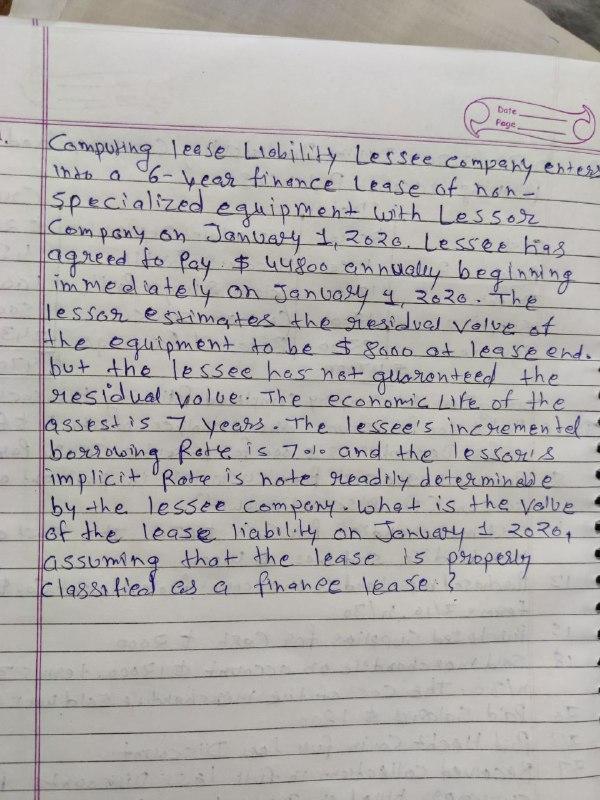 Date
Page
1.
Computing lease Liability Lessee company enters
into a 6-year finance lease of non-
specialized equipment with Lessor
Company on January 1, 2020. Lessee has
agreed to Pay $ 44800 annually beginning
immediately on January 1, 2020. The
lessor estimates the residual value of
the equipment to be $ 8000 at lease end.
but the lessee has not guaranteed the
residual value. The economic Life of the
assest is 7 years. The lessee's incremental
borrowing Rate is 7% and the lessor's
implicit Rate is note readily determinable
by the lessee company. What is the value
of the lease liability on January 1 2020,
assuming that the lease is properly
classified as a finance lease ?